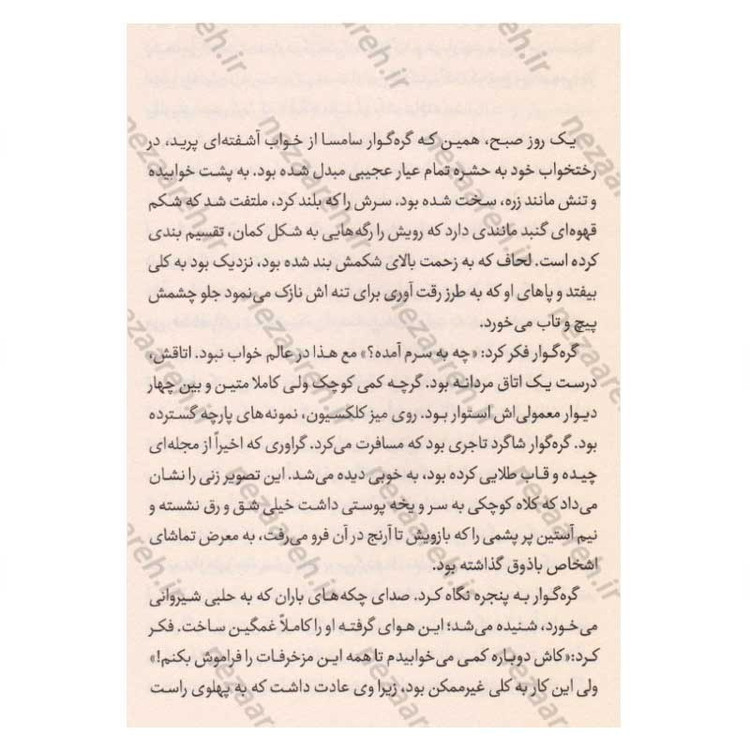 یک روز صبح، همین که گره‌گوار سامسا از خواب آشفته‌ای پرید، در
رختخواب خود به حشره تمام عیار عجیبی مبدل شده بود. به پشت خوابیده
و تنش مانند زره، سخت شده بود. سرش را که بلند کرد، ملتفت شد که شکم
قهوه‌ای گنبد مانندی دارد که رویش را رگه‌هایی به شکل کمان، تقسیم بندی
کرده است. لحاف که به زحمت بالای شکمش بند شده بود، نزدیک بود به کلی
بیفتد و پاهای او که به طرز رقت آوری برای تنه اش نازک می‌نمود جلو چشمش
پیچ و تاب می‌خورد.
گره‌گوار فکر کرد: «چه به سرم آمده؟» مع هذا در عالم خواب نبود. اتاقش،
درست یک اتاق مردانه بود. گرچه کمی کوچک ولی کاملا متین و بین چهار
دیوار معمولی‌اش استوار بود. روی میز کلکسیون، نمونه‌های پارچه گسترده
بود. گره‌گوار شاگرد تاجری بود که مسافرت می‌کرد. گراوری که اخیراً از مجله‌ای
چیده و قاب طلایی کرده بود، به خوبی دیده می‌شد. این تصویر زنی را نشان
می‌داد که کلاه کوچکی به سر و یخه پوستی داشت خیلی شق و رق نشسته و
نیم آستین پر پشمی را که بازویش تا آرنج در آن فرو می‌رفت، به معرض تماشای
اشخاص باذوق گذاشته بود.
گره‌گوار به پنجره نگاه کرد. صدای چکه‌های باران که به حلبی شیروانی
می‌خورد، شنیده می‌شد؛ این هوای گرفته او را کاملاً غمگین ساخت. فکر
کرد:«کاش دوباره کمی می‌خوابیدم تا همه این مزخرفات را فراموش بکنم!»
ولی این کار به کلی غیرممکن بود، زیرا وی عادت داشت که به پهلوی راست
nezaareh.ir